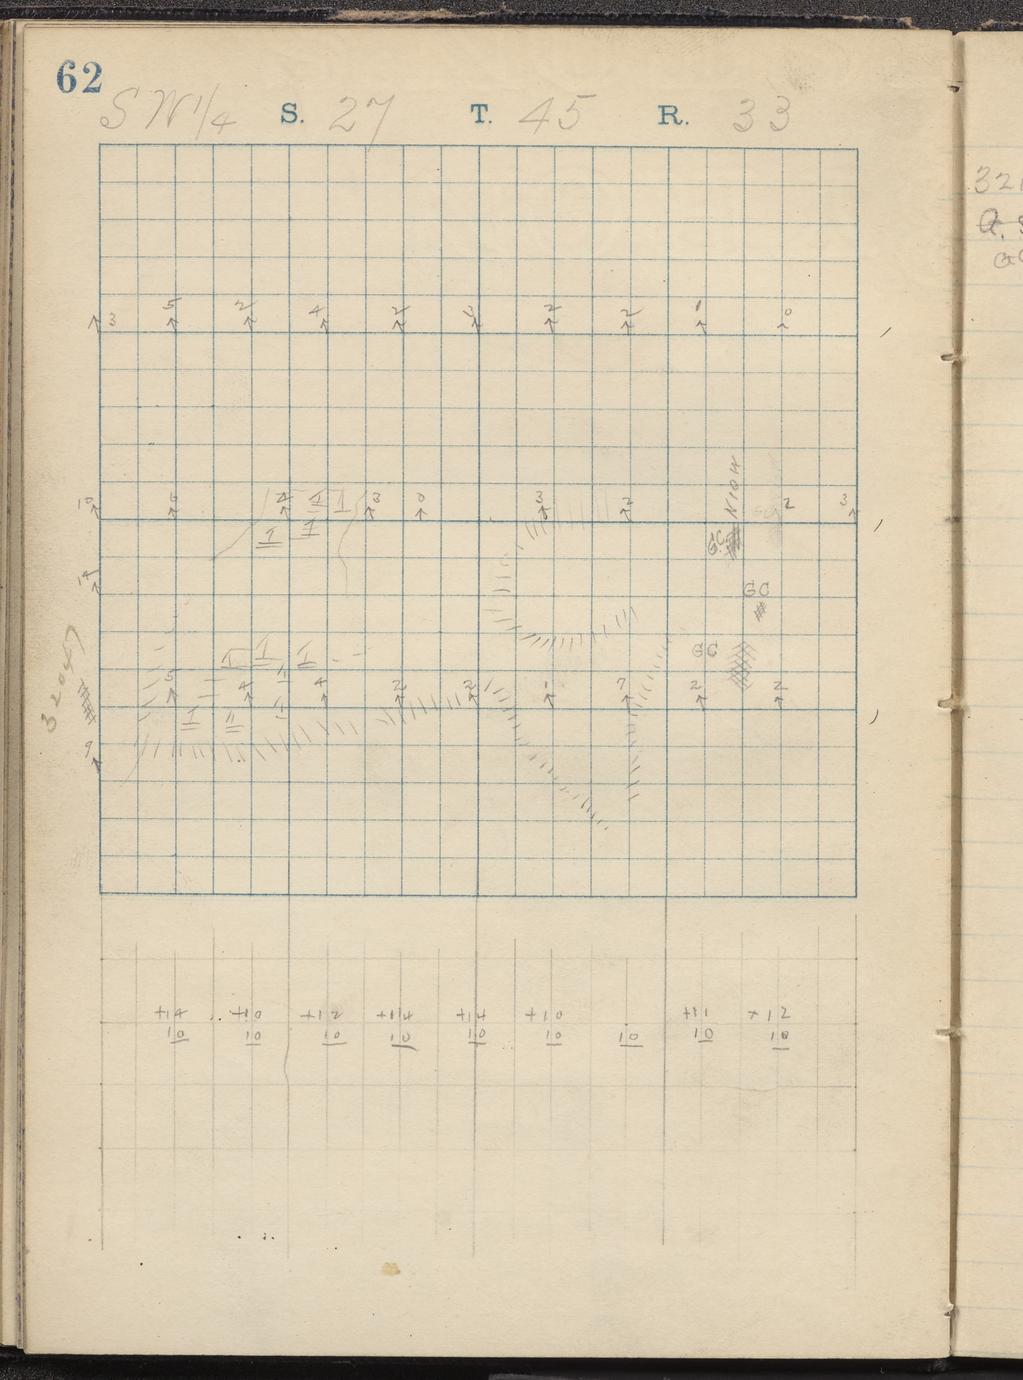 62
SW 1/4 S. 27 T. 45 R. 33
321
a.
3 5 2 4 2 2 2 1 0
N 10 4
10 6 4 I I 3 0 3 2 2 3
I I GC
14 GC
I I I GC
5 4 4 2 2 1 7 2 2
I II
32047
9
+14 +10 +12 +14 +14 +10 +11 +12
10 10 10 10 10 10 10 10 10